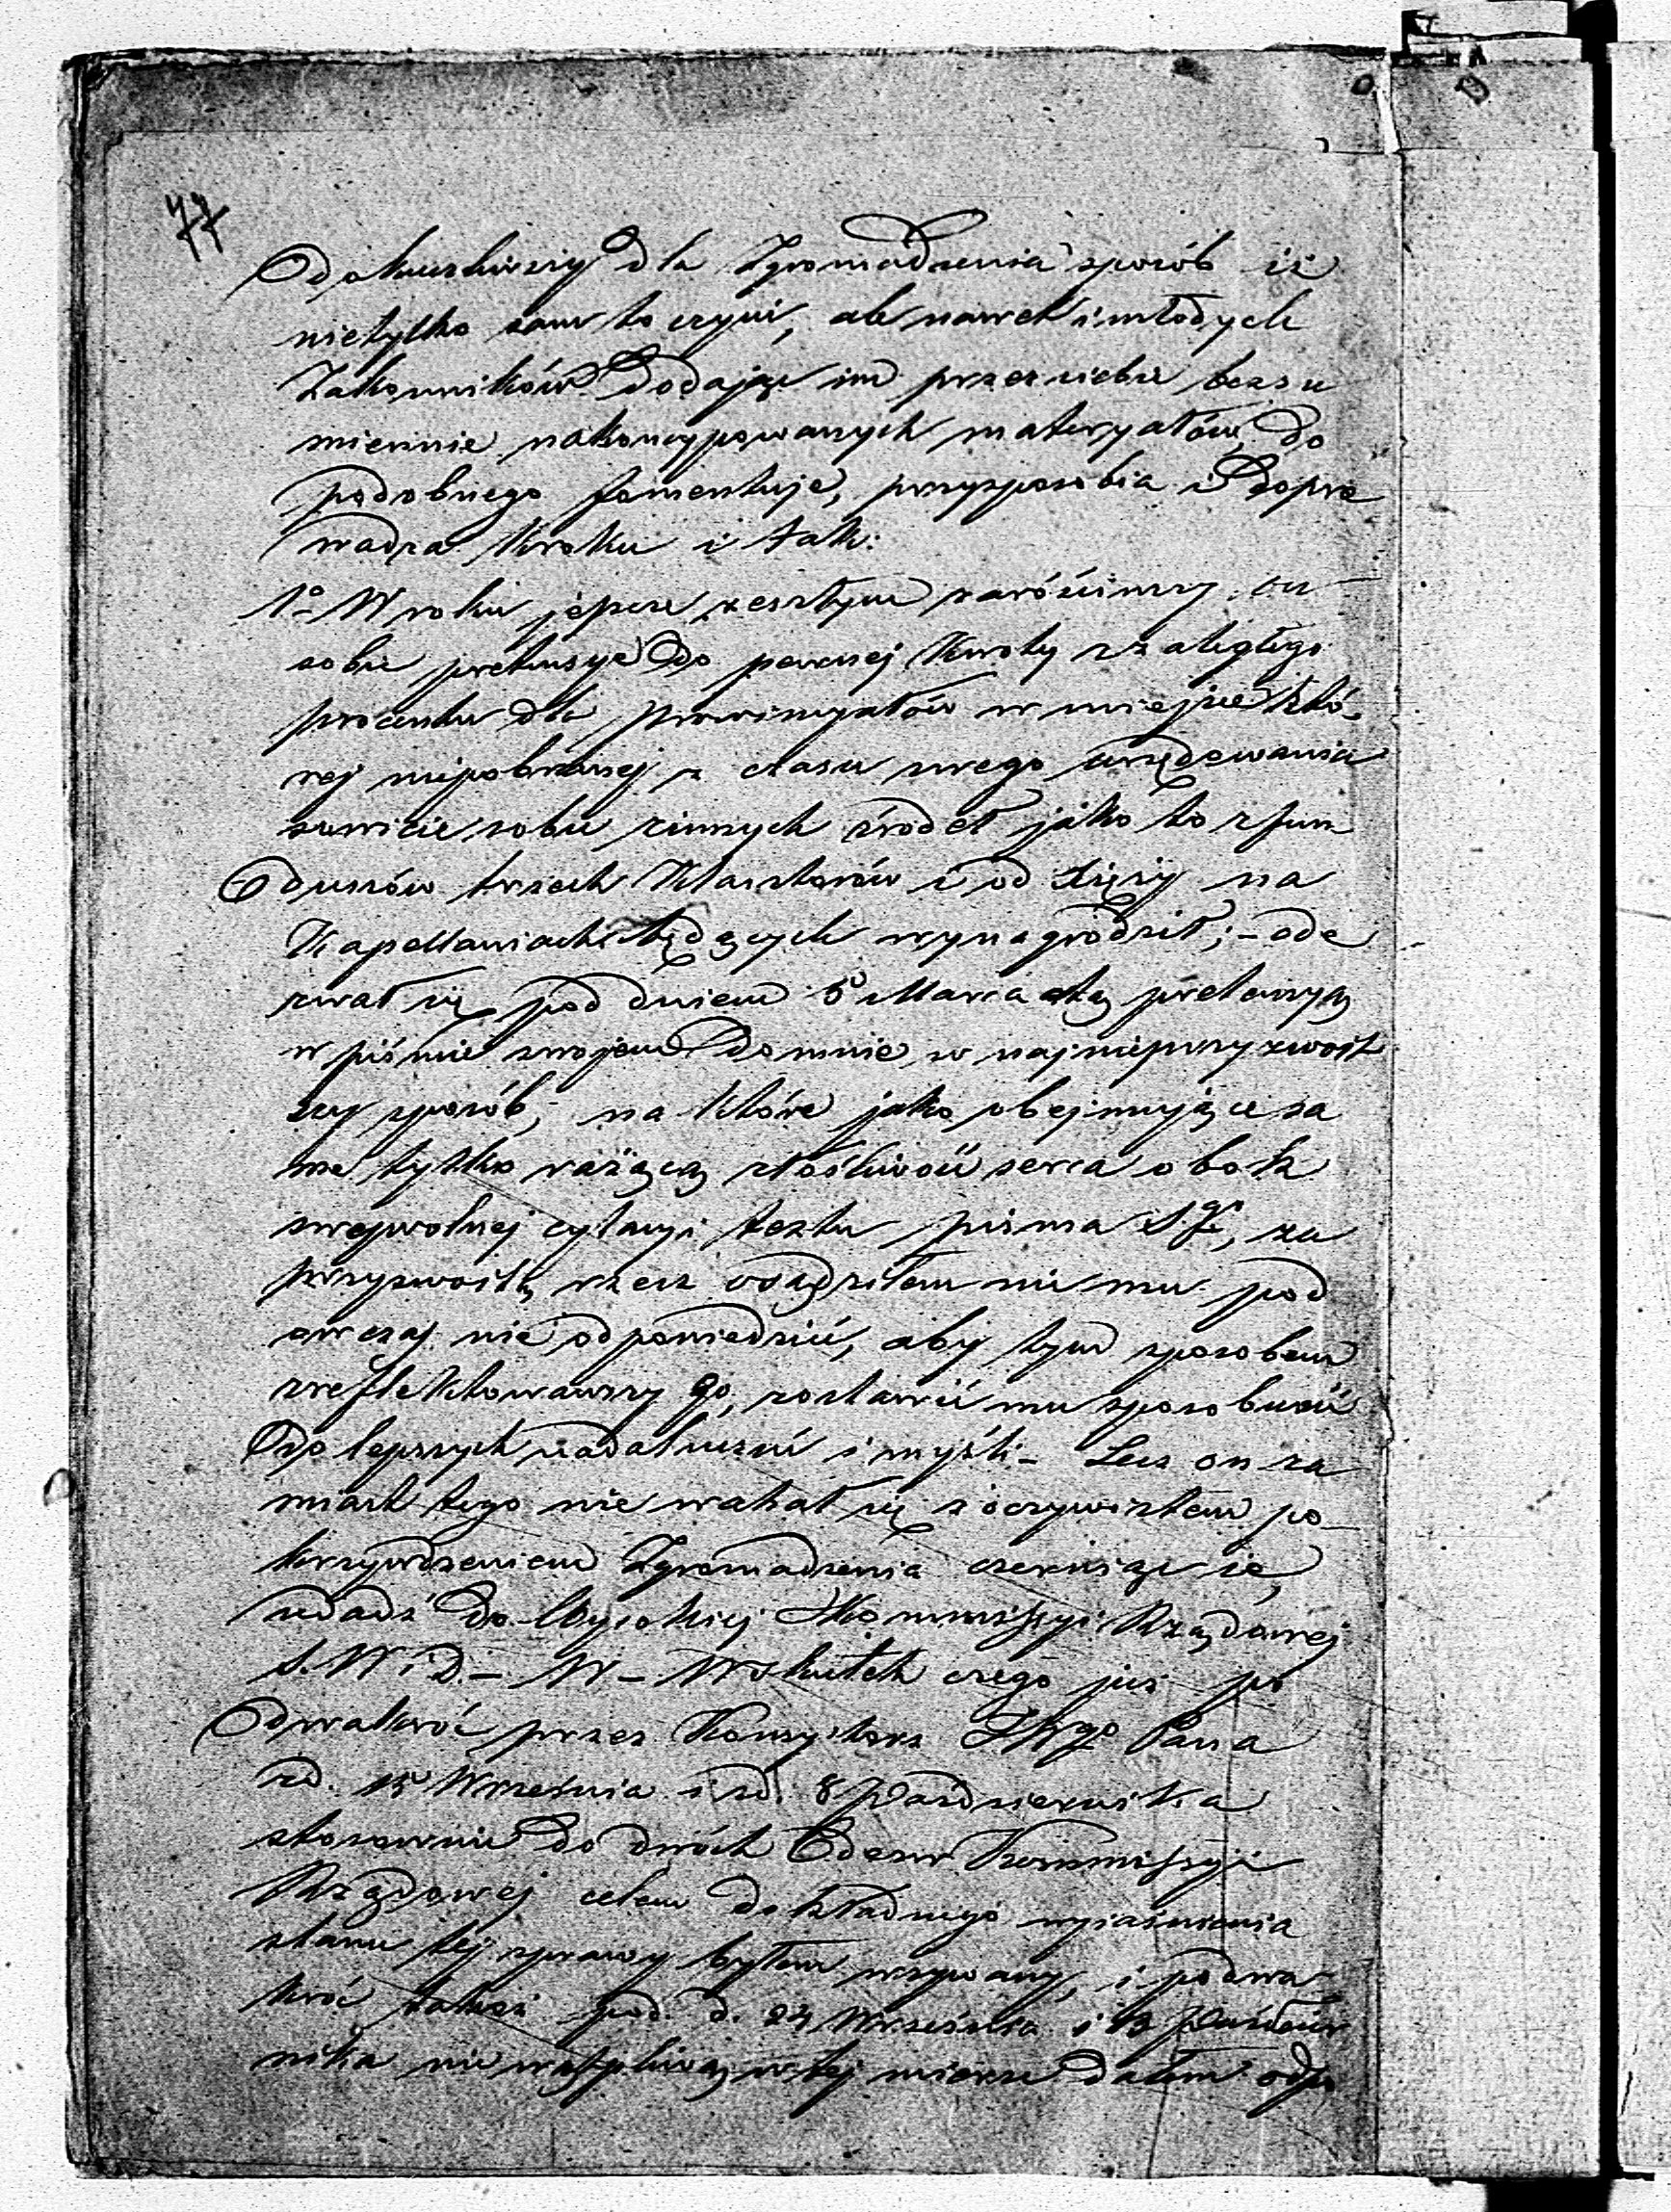 77
dokuczliwszy dla Zgromadzenia sposób iż
nietylko sam to czyni, ale nawet i młodych
Zakonników dodając im przez siebie bezsu
miennie nakoncypowanych materyałów do
podobnego fomentuje, przysposobia i dopro
wadza kroku i tak:
1º W roku jeszcze zeszłym zarościwszy on
sobie pretensye do pewnej kwoty z zaległego
procentu dla prowincyałów w miejsce któ-
rej niepobranej z czasu swego urzędowania
sowicie sobie z innych źrodeł jako to z fun
duszów trzech Klasztorów i od Xięży na
Kapellaniach będących wynagrodził; - ode
zwał się pod dniem 5 Marca z tą pretensyą
w piśmie swojem do mnie w najnieprzyzwoit
szy sposób, na które jako obejmujące sa
me tylko rażącą złośliwość serca obok
swejwolnej cytacyi textu pisma Sgo, za
przyzwoitą rzecz osądziłem nie mu pod
owczas nie odpowiedzić, aby tym sposobem
zreflektowawszy go, zostawić mu sposobność
do lepszych i myśli - Lecz on za
miast tego nie wahał się z oczywistem po-
krzywdzeniem Zgromadzenia czerniąc je,
udadź do Wysokiej Kommissyi Rządowej
S. W. i D. - W - Wskutek czego już po
dwakroć przez Konsystorz JWgo Pana
zd. 15 Września i zd. 8 Października
stosownie do dwóch Odezw Kommissyi
Rządowej celem dokładnego wyjaśnienia
stanu tej sprawy byłem wzywany, i podwa
kroć takoż pod. d. 24 Września i 13 Paździer
nika nie wątpliwą w tej mierze dałem odpo